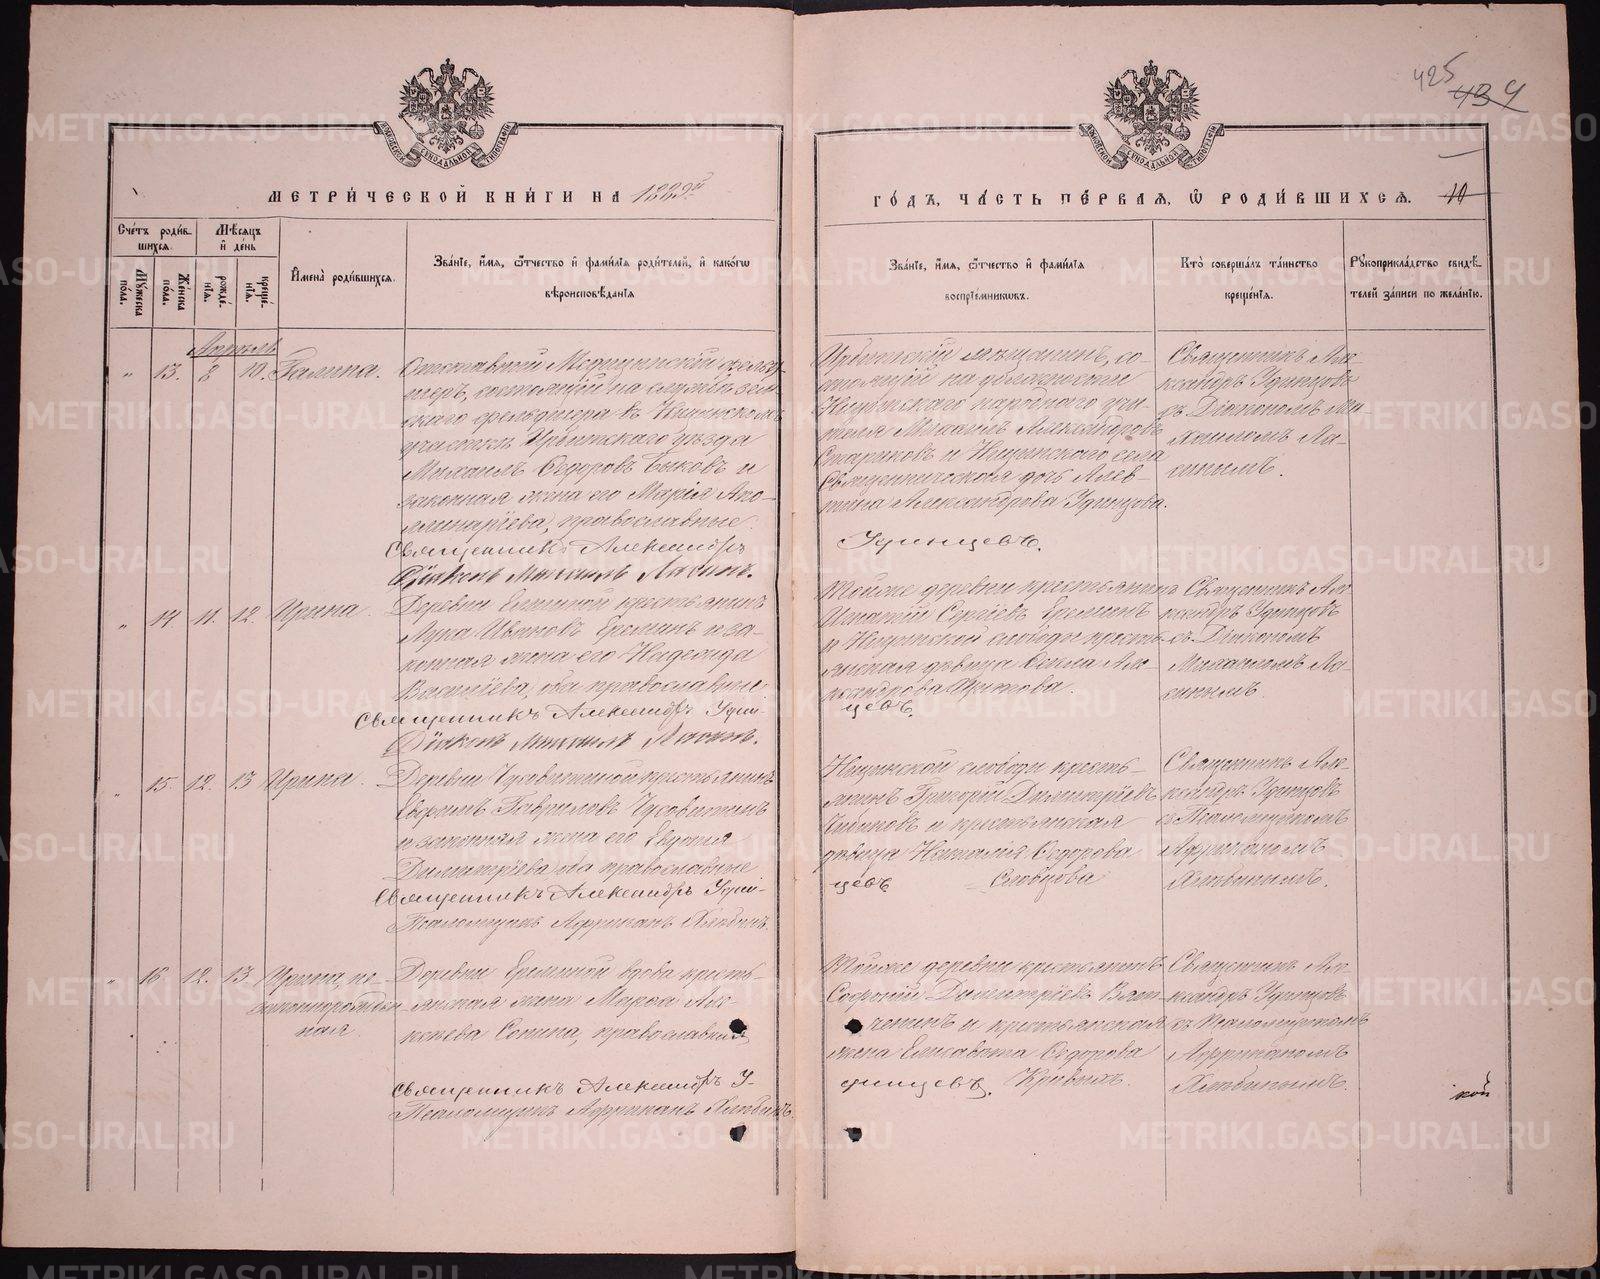 425
434
МЕТРИ́ЧЕСКОЙ КНИ́ГИ НА 1889й
ГО́ДЪ, ЧА́СТЬ ПЕ́РВАЯ, Ѡ РОДИ́ВШИХСЯ.
10
Сче́тъ роди́в-
шихся.
Мѣ́сяцъ
и҆ де́нь
Му́жеска
по́ла.
Же́нска
по́ла.
рожде́-
нїя.
креще́-
нїя.
И҆мена̀ роди́вшихся.
Зва́нїе, и҆́мя, ѻ҆́тчество и҆ фами́лїя роди́телей, и҆ како́гѡ
вѣроисповѣ́данїя
Зва́нїе, и҆́мя, ѻ҆́тчество и҆ фами́лїя
воспрїе́мниковъ.
Кто̀ соверша́лъ та́инство
креще́нїя.
Рꙋкоприкла́дство свидѣ́-
телей за́писи по жела́нїю.
Апрѣль
" 13. 8 10. Галина.
Отставный Медицинскій фельд-
шеръ, состоящій на службѣ зем-
скаго фельдшера въ Ницинскомъ
участкѣ Ирбитскаго уѣзда
Михаилъ Ѳедоровъ Быковъ и
законная жена его Марія Апо-
линаріева, православные
Священникъ Александръ
Діаконъ Михаилъ Ласинъ.
Ирбитскій мѣщанинъ, со-
стоящій на должности
Ницинскаго народнаго учи-
теля Михаилъ Александровъ
Стариковъ и Ницинскаго села
Священническая дочь Алев-
тина Александрова Удинцова.
Удинцевъ.
Священникъ Але-
ксандръ Удинцовъ
съ Діакономъ Ми-
хаиломъ Ла-
синымъ.
" 14 11. 12. Ирина.
Деревни Ереминой крестьянинъ
Лука Ивановъ Ереминъ и за-
конная жена его Надежда
Васильева, оба православные
Священникъ Александръ Удин-
Діаконъ Михаилъ Ласинъ.
Тойже деревни крестьянинъ
Игнатій Сергіевъ Ереминъ
и Ницинской слободы кресть-
янская дѣвица Ѳекла Але-
ксандрова
цевъ.
Священникъ Але-
ксандръ Удинцовъ
съ Діакономъ
Михаиломъ Ла-
синымъ.
" 15. 12. 13 Ирина.
Деревни Чусовитиной крестьянинъ
Ефремъ Гавриловъ Чусовитинъ
и законная жена его Евдокія
Димитріева оба православные
Священникъ Александръ Удин-
Псаломщикъ Африканъ Хлѣбинъ.
Ницинской слободы кресть-
янинъ Григорій Димитріевъ
и крестьянская
дѣвица Наталія Ѳедорова
цевъ Словцова
Священникъ Але-
ксандръ Удинцовъ
съ Псаломщикомъ
Африканомъ
Хлѣбинымъ.
" 16 12. 13. Ирина, не-
законнорожден-
ная
Деревни Ереминой вдова кресть-
янская жена Марѳа Але-
ксѣева Сонина, православная
Священникъ Александръ У-
Псаломщикъ Африканъ Хлѣбинъ.
Тойже деревни крестьянинъ
Софроній Димитріевъ Вят-
ченинъ и крестьянская
жена Елисавета Ѳедорова
динцевъ. Кривыхъ.
Священникъ Але-
ксандръ Удинцовъ
съ Псаломщикомъ
Африканомъ
Хлѣбинымъ.
кой
METRIKI.GASO-URAL.RU